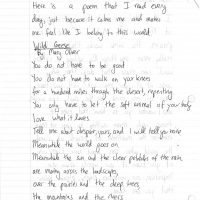 Here is a poem that I read every
day, just because it calms me and makes
me feel like I belong to this world.
Wild Geese
By Mary Oliver
You do not have to be good
You do not have to walk on your knees
for a hundred miles through the desert, repenting
You only have to let the soft animal of your body
love what it loves.
Tell me about despair, yours, and I will tell you mine
Meanwhile the world goes on.
Meanwhile the sun and the clear pebbles of the rain
are moving across the landscapes,
over the prairies and the deep trees
the mountains and the rivers